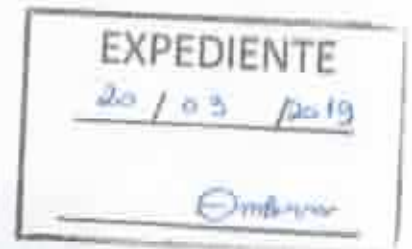 EXPEDIENTE
20 / 03 /2019